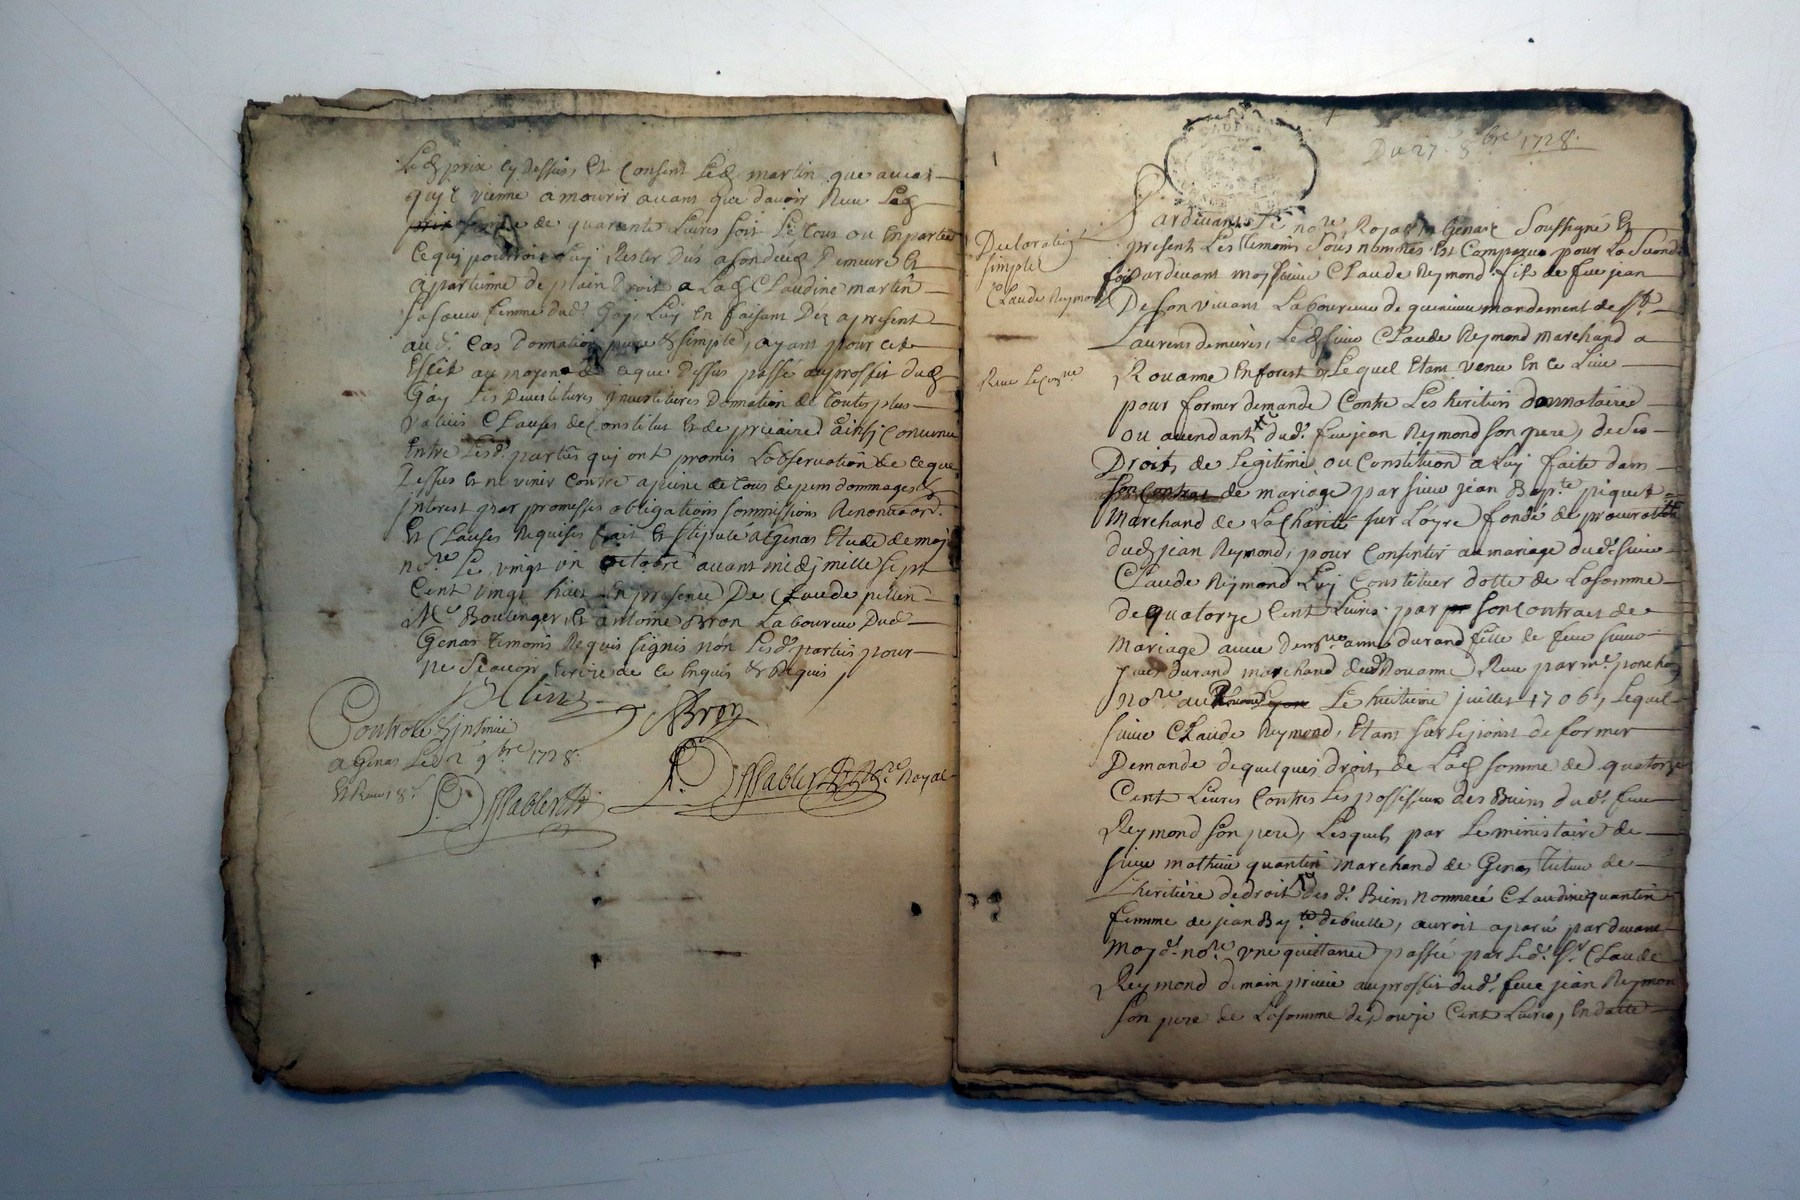 Led prix cy dessus, Et Consent Led martin que au cas
quil vienne a mourir avant que davoir Reeu Lad
somme de quarante Livres soit Le tous ou En partie
Ce qui pourroit Luy Rester dus a son deces Demeure Et
apartienne de plain droit a Lad Claudine martin
Sa soeur femme dud. Gay, Luy En faisant Dez a present
aud. Cas Donnation pure & simple, ayant pour cet
Effet au moyen de ce que dessus passé au proffit dud
Gay Les Devestitures Investitures Donnation de toutes plus
values Clauses de Constitut Et de precaire, ainsj Convenu
Entre Lesd. parties qui ont promis Lobservation de ce que
dessus Et ne venir Contre a peine de tous depens dommages &
interest par promesses obligations sommissions Renonciaõns
Et Clauses Requises fait Et stipulé a Genas Etude de moj
nre. Le vingt un octobre avant midj mille sept
Cent vingt huit En presence De Claude
Me. Boulenger, Et antoine Bron Laboureur dud.
Genas temoins Requis signés non Lesd. parties pour
ne Scavoir Ecrire de ce Enquis & Requis
Bron
Controlé & jnsinué
a Genas Le 2 9bre 1728.
Reeu 18 s
Nore. Royal
Du 27 8bre 1728.
Declaration
simple
Claude Reymond
Pardevant Le nore. Royal a Genas Soussigné Et
present Les temoins Sous nommes Est Comparu pour La seconde
fois pardevant moy sieur Claude Reymond fils de feu jean
De son vivant Laboureur de mandement de St.
Laurens de mures, Led sieur Claude Reymond marchand a
Rouanne En forest Lequel Etant venu En ce Lieu
pour former demande Contre Les heritiers donnataires
ou ayendant dud. feu jean Reymond son pere, de ses
Droits de Legitime ou Constitution a Luy faite dans
son Contrat de mariage par sieur jean Bapte. piquet
Marchand de La Charité sur Loyre fondé de procuration
dud jean Reymond, pour Consentir au mariage dud. sieur
Claude Reymond Luy Constituer dotte de La somme
de quatorze Cent Livres par son Contrat de
Mariage avec demlle. anne durand fille de feu sieur
yves durand marchand dud Rouanne, Reeu par me.
nore. au Rouanne Le huitieme juillet 1706, Lequel
sieur Claude Reymond, Etant sur Le point de former
Demande de quelques droits de Lad somme de quatorze
Cent Livres Contre Les possesseurs des Biens dud. feu
Reymond son pere, Lesquels par Le ministaire de
sieur mathieu quantin marchand de Genas tuteur de
Lheritiere de droit desd. Biens nommeé Claudine quantin
femme de jean Bapte. debuelle, auroit aparü pardevant
moyd. nore. vne quittance passée par Led. Sr. Claude
Reymond de main privée au proffit dud. feu jean Reymond
son pere de La somme de Douze Cent Livres, En datte